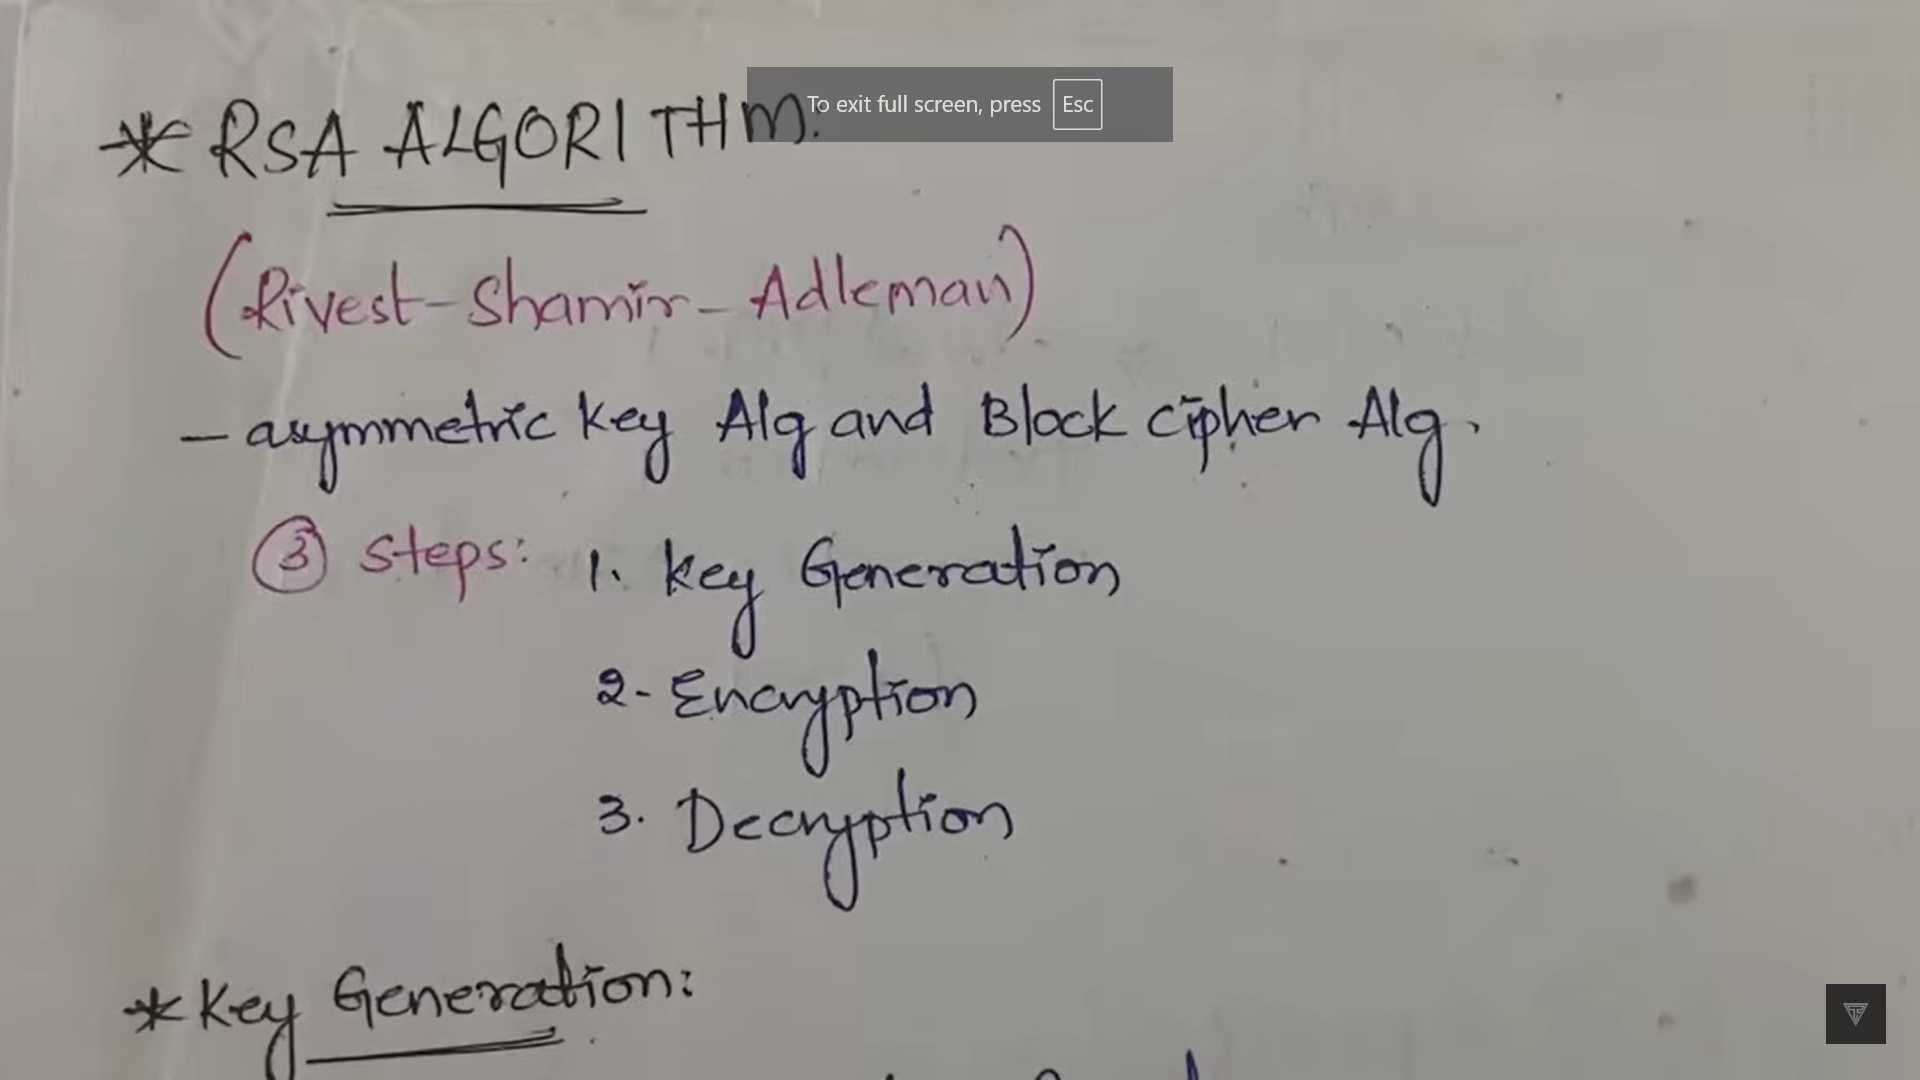 To exit full screen, press Esc
* RSA ALGORITHM:
(Rivest-Shamir-Adleman)
- asymmetric key Alg and Block cipher Alg.
③ steps: 1. key Generation
2- Encryption
3. Decryption
* Key Generation: